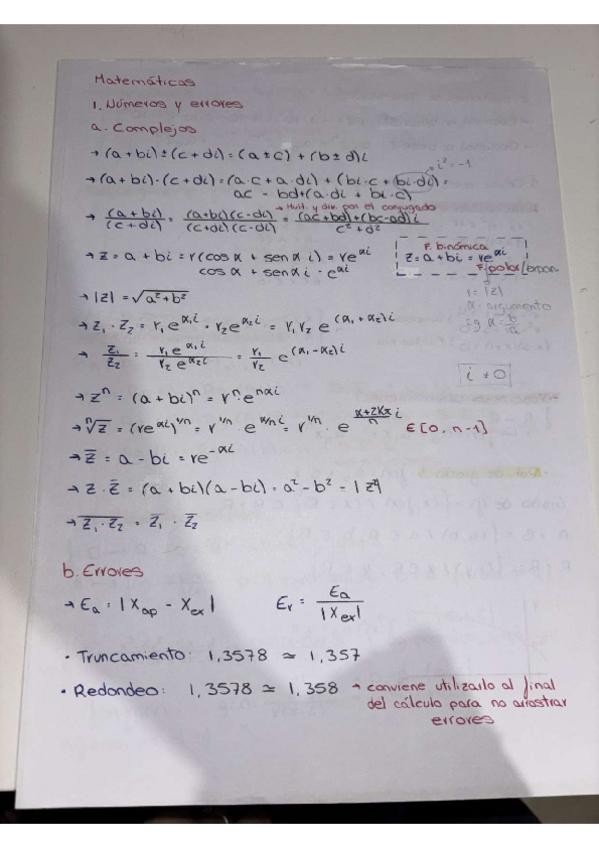 Matemáticas
1. Números y errores
a. Complejos
→ (a + bi) ± (c + di) = (a ± c) + (b ± d)i
i² = -1
→ (a + bi) · (c + di) = (a·c + a·di) + (bi·c + bi·di) =
ac - bd + (a·di + bi·c)
→ Mult. y div. por el conjugado
→ (a + bi)/(c + di) = (a+bi)(c-di)/(c+di)(c-di) = (ac+bd)+(bc-ad)i/c²+d²
F. binómica
→ z = a + bi = r(cos α + sen α i) = re^αi
z = a + bi = re^αi
cos α + sen α i = e^αi
F. polar/expon.
→ |z| = √a² + b²
r = |z|
α = argumento
tg α = b/a
→ z₁ · z₂ = r₁e^α₁i · r₂e^α₂i = r₁r₂ e^(α₁ + α₂)i
→ z₁/z₂ = r₁e^α₁i/r₂e^α₂i = r₁/r₂ e^(α₁ - α₂)i
i ≠ 0
→ zⁿ = (a + bi)ⁿ = rⁿe^nαi
→ ⁿ√z = (re^αi)^1/n = r^1/n · e^α/n i = r^1/n · e^α+2Kπ/n i ∈ [0, n-1]
→ z̄ = a - bi = re^-αi
→ z · z̄ = (a + bi)(a - bi) = a² - b² = |z|²
→ \overline{z₁ · z₂} = z̄₁ · z̄₂
b. Errores
→ Ea = |Xap - Xex| Er = Ea/|Xex|
· Truncamiento: 1,3578 ≃ 1,357
· Redondeo: 1,3578 ≃ 1,358 → conviene utilizarlo al final
del cálculo para no arrostrar
errores